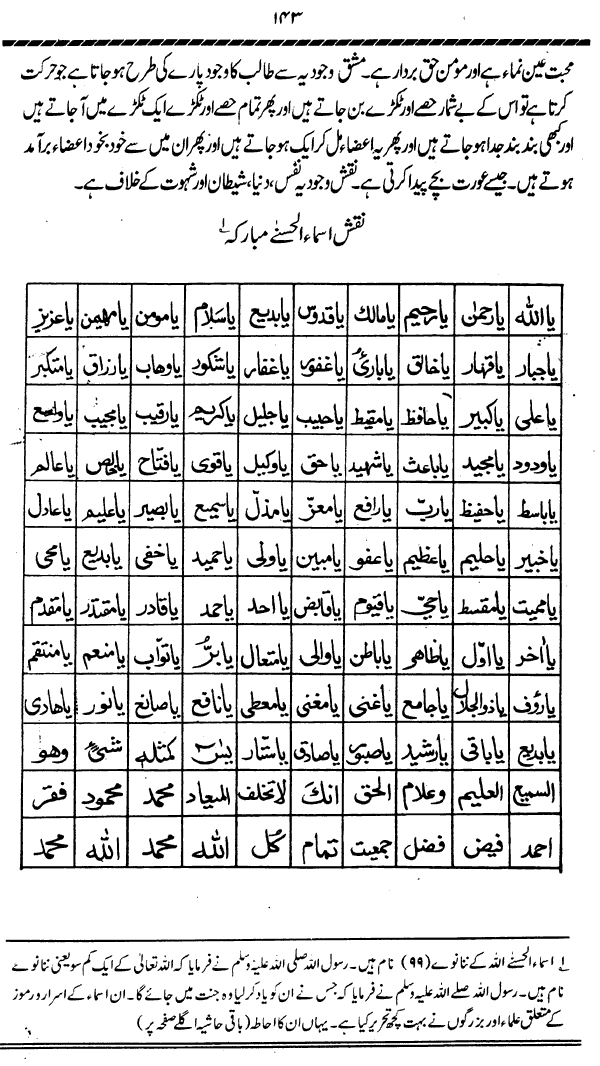 ۱۴۳
محبت عین نماء ہے اور مومن حق بردار ہے۔ مشق وجودیہ سے طالب کا وجود پارے کی طرح ہو جاتا ہے جو حرکت
کرتا ہے تو اس کے بے شمار حصے اور ٹکڑے بن جاتے ہیں اور پھر تمام حصے اور ٹکڑے ایک ٹکڑے میں آ جاتے ہیں
اور کبھی بند بند جدا ہو جاتے ہیں اور پھر یہ اعضاء مل کر ایک ہو جاتے ہیں اور پھر ان میں سے خود بخود اعضاء برآمد
ہوتے ہیں۔ جیسے عورت بچے پیدا کرتی ہے۔ نقش وجودیہ نفس، دنیا، شیطان اور شہوت کے خلاف ہے۔
نقش اسماء الحسنےٰ مبارکہ ۱؎
یا اللہ یا رحمٰن یا رحیم یا مالک یا قدوس یا بدیع یا سلام یا مومن یا مہیمن یا عزیز
یا جبار یا قہار یا خالق یا بارئ یا غفور یا غفار یا شکور یا وھاب یا رزاق یا متکبر
یا علی یا کبیر یا حافظ یا مقیط یا حبیب یا جلیل یا کریم یا رقیب یا مجیب یا واسع
یا ودود یا مجید یا باعث یا شہید یا حق یا وکیل یا قوی یا فتاح یا عالم
یا باسط یا حفیظ یا ربّ یا رافع یا معزّ یا مذلّ یا سمیع یا بصیر یا علیم یا عادل
یا خبیر یا حلیم یا عظیم یا عفو یا مبین یا ولی یا حمید یا خفی یا بدیع یا محی
یا ممیت یا مقسط یا حیّ یا قیوم یا قابض یا احد یا حمد یا قادر یا مقتدر یا مقدم
یا اخر یا اوّل یا ظاھر یا باطن یا والی یا متعال یا برُّ یا توّاب یا منعم یا منتقم
یا رؤف یا ذوالجلال یا جامع یا غنی یا مغنی یا معطی یا نافع یا صانع یا نور یا ھادی
یا بدیع یا باقی یا رشید یا صبور یا صادق یا ستار یس کمثلہ شیٌٔ وھو
السمیع العلیم وعلام الحق انک لا تخلف المیعاد محمد محمود فقر
احمد فیض فضل جمعیت تمام کُل اللہ محمد اللہ محمد
۱؎ اسماء الحسنےٰ اللہ کے ننانوے (۹۹) نام ہیں۔ رسول اللہ صلی اللہ علیہ وسلم نے فرمایا کہ اللہ تعالیٰ کے ایک کم سو یعنی ننانوے
نام ہیں۔ رسول اللہ صلے اللہ علیہ وسلم نے فرمایا کہ جس نے ان کو یاد کر لیا وہ جنت میں جائے گا۔ ان اسماء کے اسرار و رموز
کے متعلق علماء اور بزرگوں نے بہت کچھ تحریر کیا ہے۔ یہاں ان کا احاطہ (باقی حاشیہ اگلے صفحہ پر)